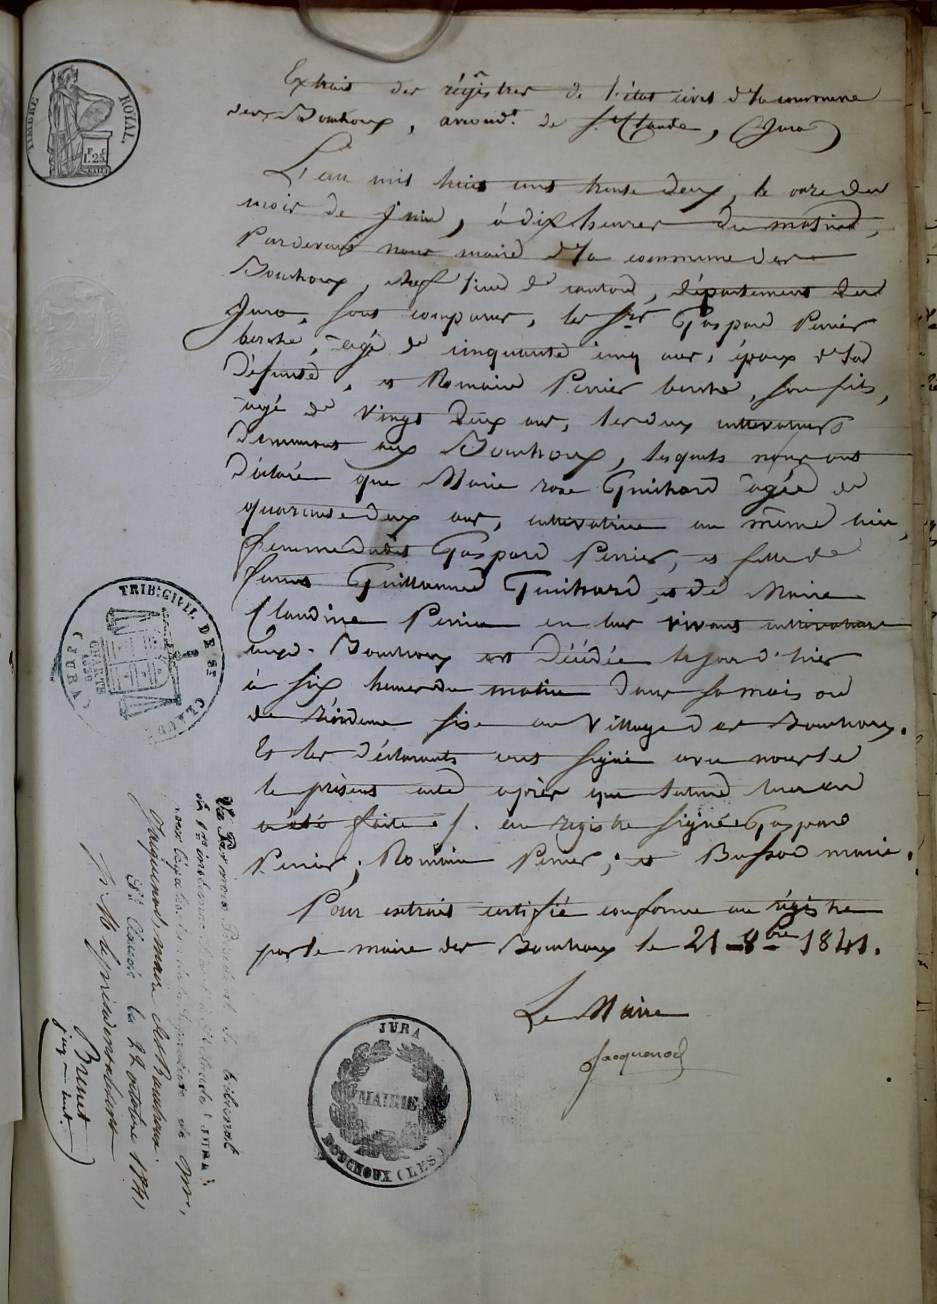 TIMBRE ROYAL.
1F. 25c
Extrait des régistres de l'état civil d'la commune
des Bouchoux, arrond.t de St Claude, (Jura)
L'an mil huit cent trente deux, le onze du
mois de Juin, à dix heures du matin,
Pardevant nous maire d'la commune des
Bouchoux, chef lieu de canton, département du
Jura, sont comparus, les Srs Gaspard Perrier
berche, agé de cinquante cinq ans, époux d'la
défunte, et Romain Perrier berche, son fils,
agé de vingt deux ans, les deux cultivateurs
demeurant aux Bouchoux, lesquels nous ont
déclaré que Marie rose Guichard agée de
quarante deux ans, cultivatrice au même lieu,
femme dudit Gaspard Perrier, et fille de
feus Guillaume Guichard, et de Marie
Claudine Perrier en leur vivant cultivateurs
auxd. Bouchoux est décédée le jour d'hier
à six heures du matin dans sa maison
de résidence sise au village des Bouchoux.
Et les déclarants ont signé avec nous le
le présent acte après que lecture leur en
a été faite /. au registre signé Gaspard
Perrier; Romain Perrier; et Bussod maire.
Pour extrait certifié conforme au régistre
par le maire des Bouchoux le 21 8bre 1841.
Le Maire
Jacquenod
JURA
MAIRIE
BOUCHOUX (LES)
TRIB. CIVIL DE ST CLAUDE (JURA)
CHARTE 1830
Vu Par nous Président du tribunal
de 1re instance de St Claude (Jura)
pour légalisation de la signature de Mr
Jacquenod, maire des Bouchoux
St Claude le 22 octobre 1841
Brunet